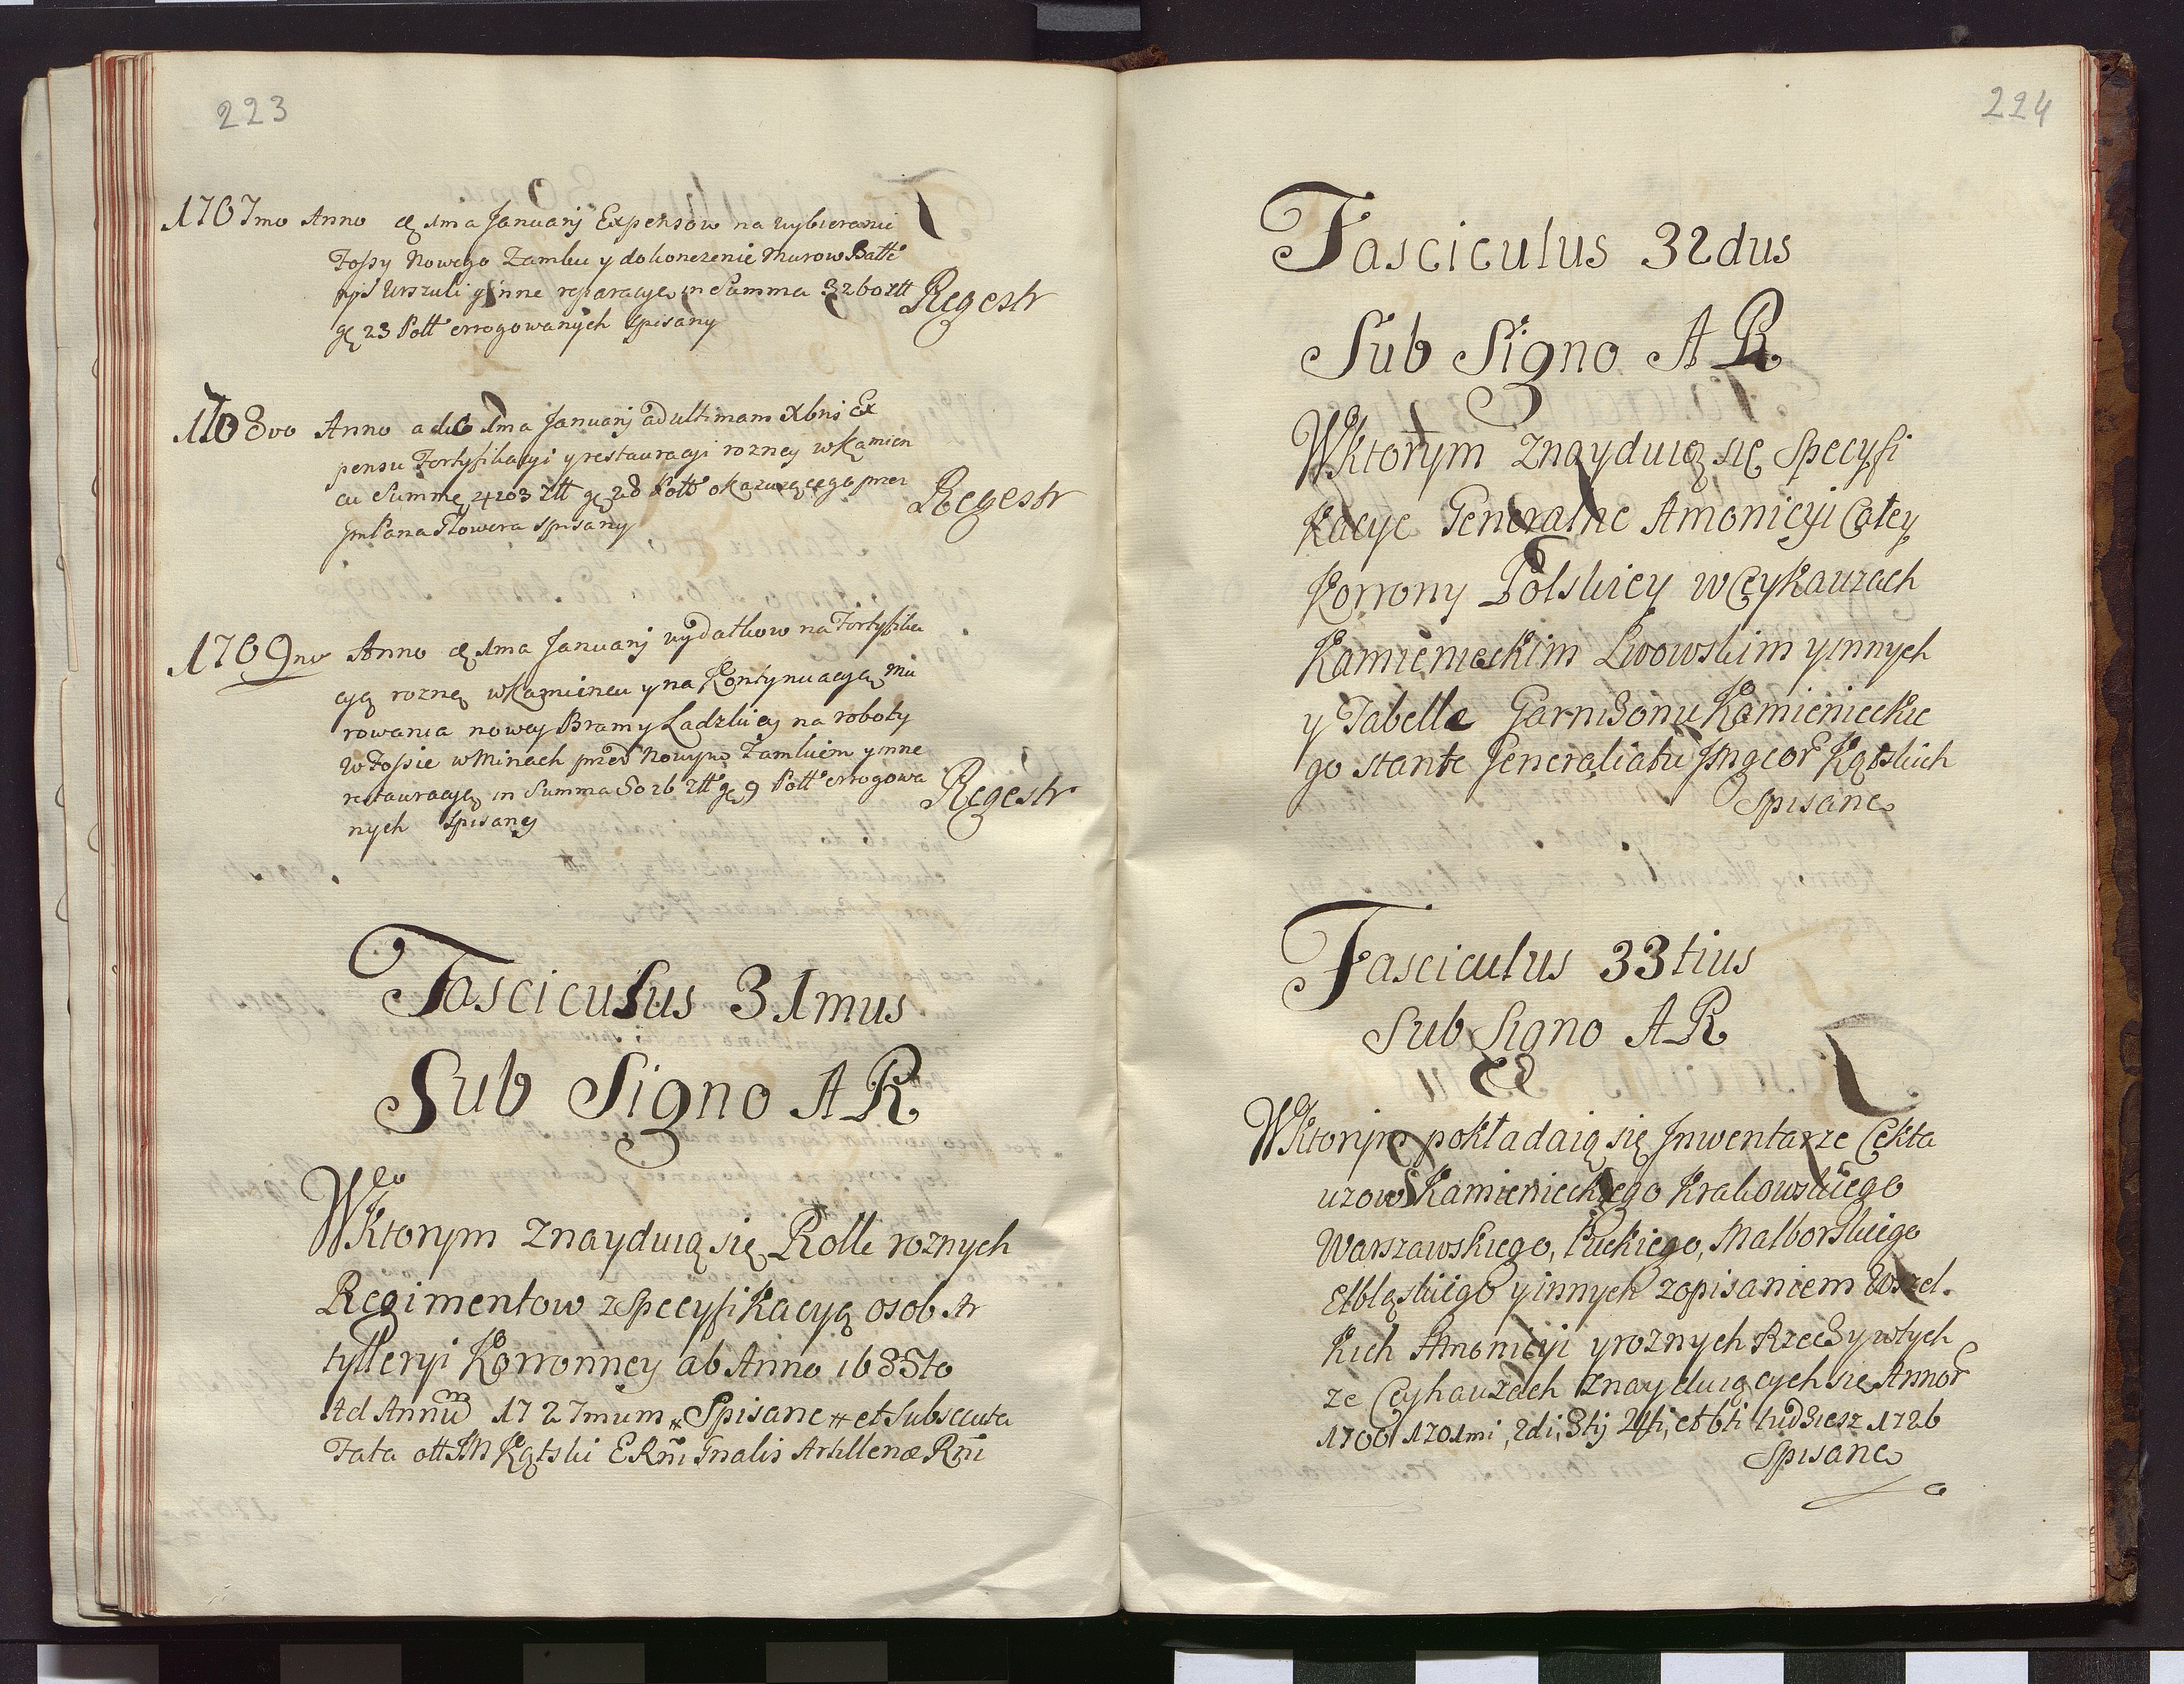 223
1707mo Anno a 1ma Januarij Expensow na wybieranie
Fossy Nowego Zamku y dokonczenie Murow Batte
ryi Urszuli y inne reparacye in Summa 3260 Złł
gr 23 Poll errogowanych spisany
Regestr
1708vo Anno a die 1ma Januarij ad ultimam Xbris Ex
pensu Fortyfikacyi y restauracyi rozney w Kamien
cu Summę 4203 Złł gr 28 Poll okazuiącego przez
Jm Pana Glowera spisany
Regestr
1709no Anno a 1ma Januarij wydatkow na Fortyfika
cyą rozną w Kamiencu y na Kontynuacyą Mu
rowania nowey Bramy Ladzkiey na roboty
w Fossie w Minach przed Nowym Zamkiem y inne
restauracye in Summa 5026 Złł gr 9 Poll errogowa
nych spisany
Regestr
Fasciculus 31mus
Sub Signo AR
W Ktorym Znayduią się Rolle roznych
Regimentow z Specyfikacyą osob Ar
tylleryi Korronney ab Anno 1685to
Ad Annum 1727mum Spisane et Subsecuta
Fata olł JM Kątski ERni Gnalis Artilleriæ Rni
224
Fasciculus 32dus
Sub Signo AR
W Ktorym Znayduią się Specyfi
Kacye Generalne Amonicyi Całey
Korrony Polskiey w Cykauzach
Kamienieckim Lwowskim y innych
y Tabella Garnizonu Kamienieckie
go stante Generaliatu Jmgcor Kątskich
Spisane
Fasciculus 33tius
Sub Signo AR
W Ktorym pokładaią się Jnwentarze Cekha
uzow Kamienieckiego Krakowskiego
Warszawskiego, Puckiego, Malborskiego
Elbląskiego y innych zopisaniem Wszel.
Kich Amonicyi y roznych Rzeczy w tych
ze Ceyhauzach znayduiących się Annor
1700 1701mi, 2di, 3tij 4ti, et 6ti tudziesz 1726
Spisane